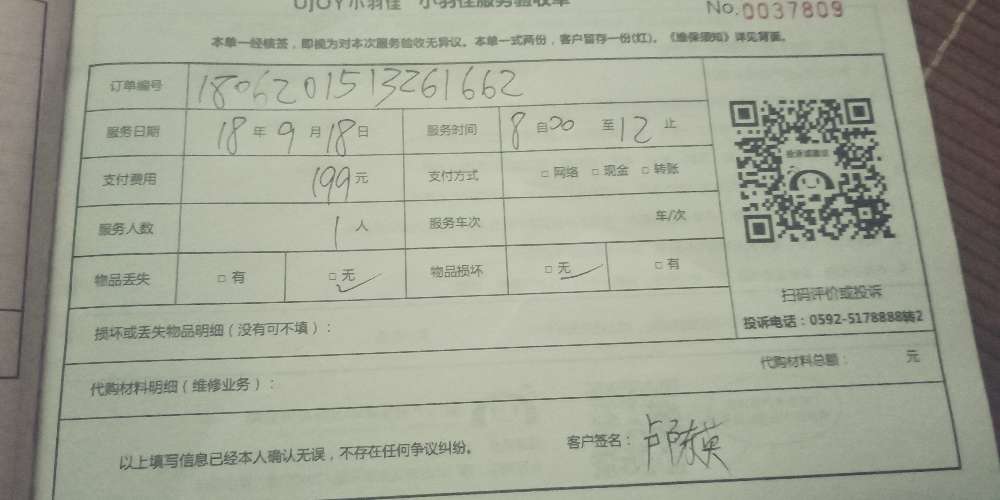 UJOY小羽佳 小羽佳服务验收单
No.0037809
本单一经核签，即视为对本次服务验收无异议。本单一式两份，客户留存一份(红)。《维保须知》详见背面。
订单编号 1806201513261662
服务日期 18年9月18日 服务时间 8自00 至12止
支付费用 199元 支付方式 □网络 □现金 □转账
服务人数 1人 服务车次 车/次
物品丢失 □有 □无 物品损坏 □无 □有
投诉或建议
扫码评价或投诉
投诉电话：0592-5178888转2
损坏或丢失物品明细（没有可不填）：
代购材料明细（维修业务）： 代购材料总额： 元
以上填写信息已经本人确认无误，不存在任何争议纠纷。 客户签名：